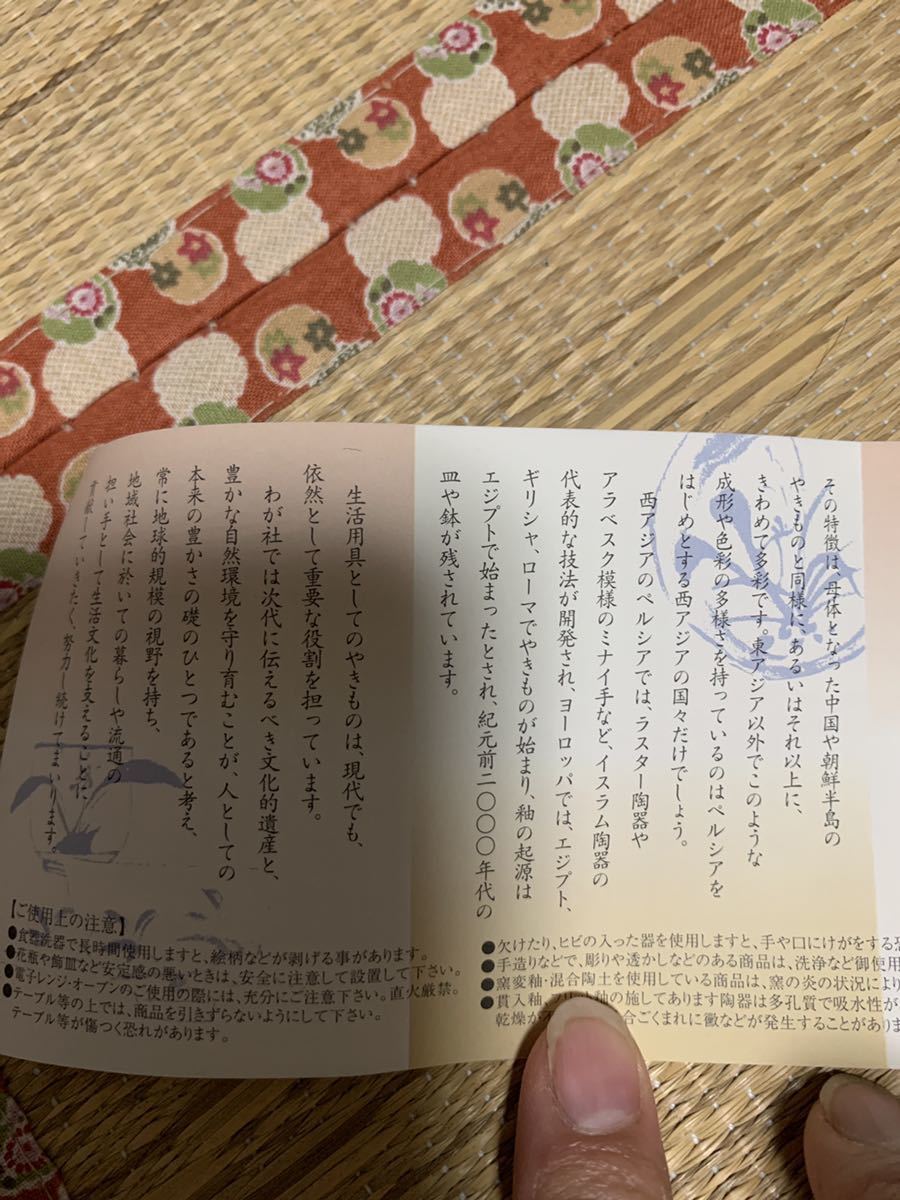 その特徴は、母体となった中国や朝鮮半島の
やきものと同様に、あるいはそれ以上に、
きわめて多彩です。東アジア以外でこのような
成形や色彩の多様さを持っているのはペルシアを
はじめとする西アジアの国々だけでしょう。
西アジアのペルシアでは、ラスター陶器や
アラベスク模様のミナイ手など、イスラム陶器の
代表的な技法が開発され、ヨーロッパでは、エジプト、
ギリシャ、ローマでやきものが始まり、釉の起源は
エジプトで始まったとされ、紀元前二〇〇〇年代の
皿や鉢が残されています。
生活用具としてのやきものは、現代でも、
依然として重要な役割を担っています。
わが社では次代に伝えるべき文化的遺産と、
豊かな自然環境を守り育むことが、人としての
本来の豊かさの礎のひとつであると考え、
常に地球的規模の視野を持ち、
地域社会に於いての暮らしや流通の
担い手として生活文化を支えることに
貢献していきたく、努力し続けてまいります。
【ご使用上の注意】
●食器洗器で長時間使用しますと、絵柄などが剥げる事があります。
●花瓶や飾皿など安定感の悪いときは、安全に注意して設置して下さい。
●電子レンジ・オーブンのご使用の際には、充分にご注意下さい。直火厳禁。
●テーブル等の上では、商品を引きずらないようにして下さい。
テーブル等が傷つく恐れがあります。
●欠けたり、ヒビの入った器を使用しますと、手や口にけがをする恐
●手造りなどで、彫りや透かしなどのある商品は、洗浄など御使用
●窯変釉・混合陶土を使用している商品は、窯の炎の状況により
●貫入釉、 釉の施してあります陶器は多孔質で吸水性が
乾燥が 合ごくまれに黴などが発生することがありま